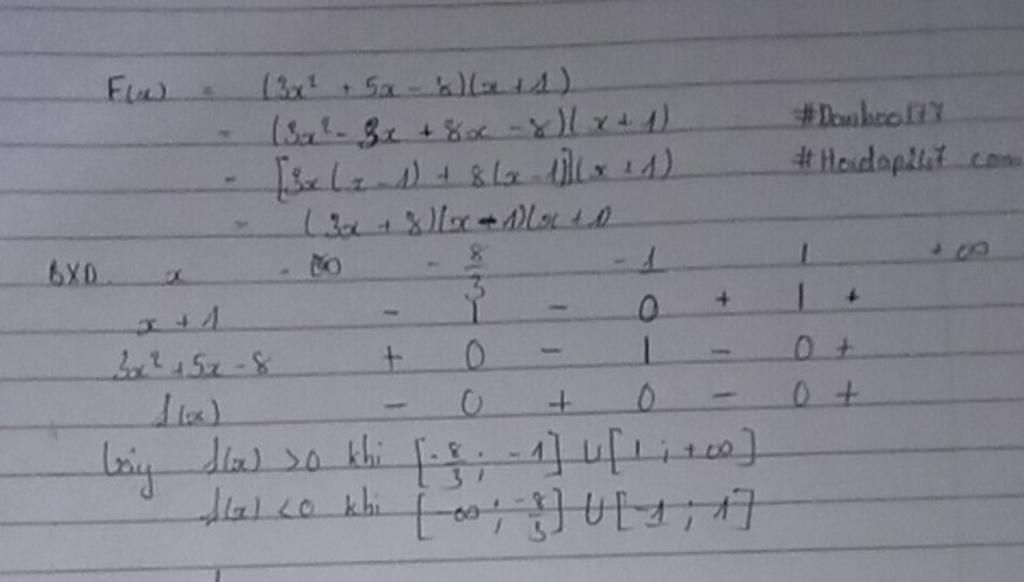 F(x) = (3x² + 5x - 8)(x + 1)
= (3x² - 3x + 8x - 8)(x + 1)
= [3x(x - 1) + 8(x - 1)](x + 1) #Hoidap247 com
= (3x + 8)(x - 1)(x + 1)
BXD x -∞ -8/3 -1 1 +∞
x + 1 - | - 0 + | +
3x² + 5x - 8 + 0 - | - 0 +
f(x) - 0 + 0 - 0 +
Vậy f(x) > 0 khi [-8/3 ; -1] ∪ [1 ; +∞]
f(x) < 0 khi [-∞ ; -8/3] ∪ [-1 ; 1]